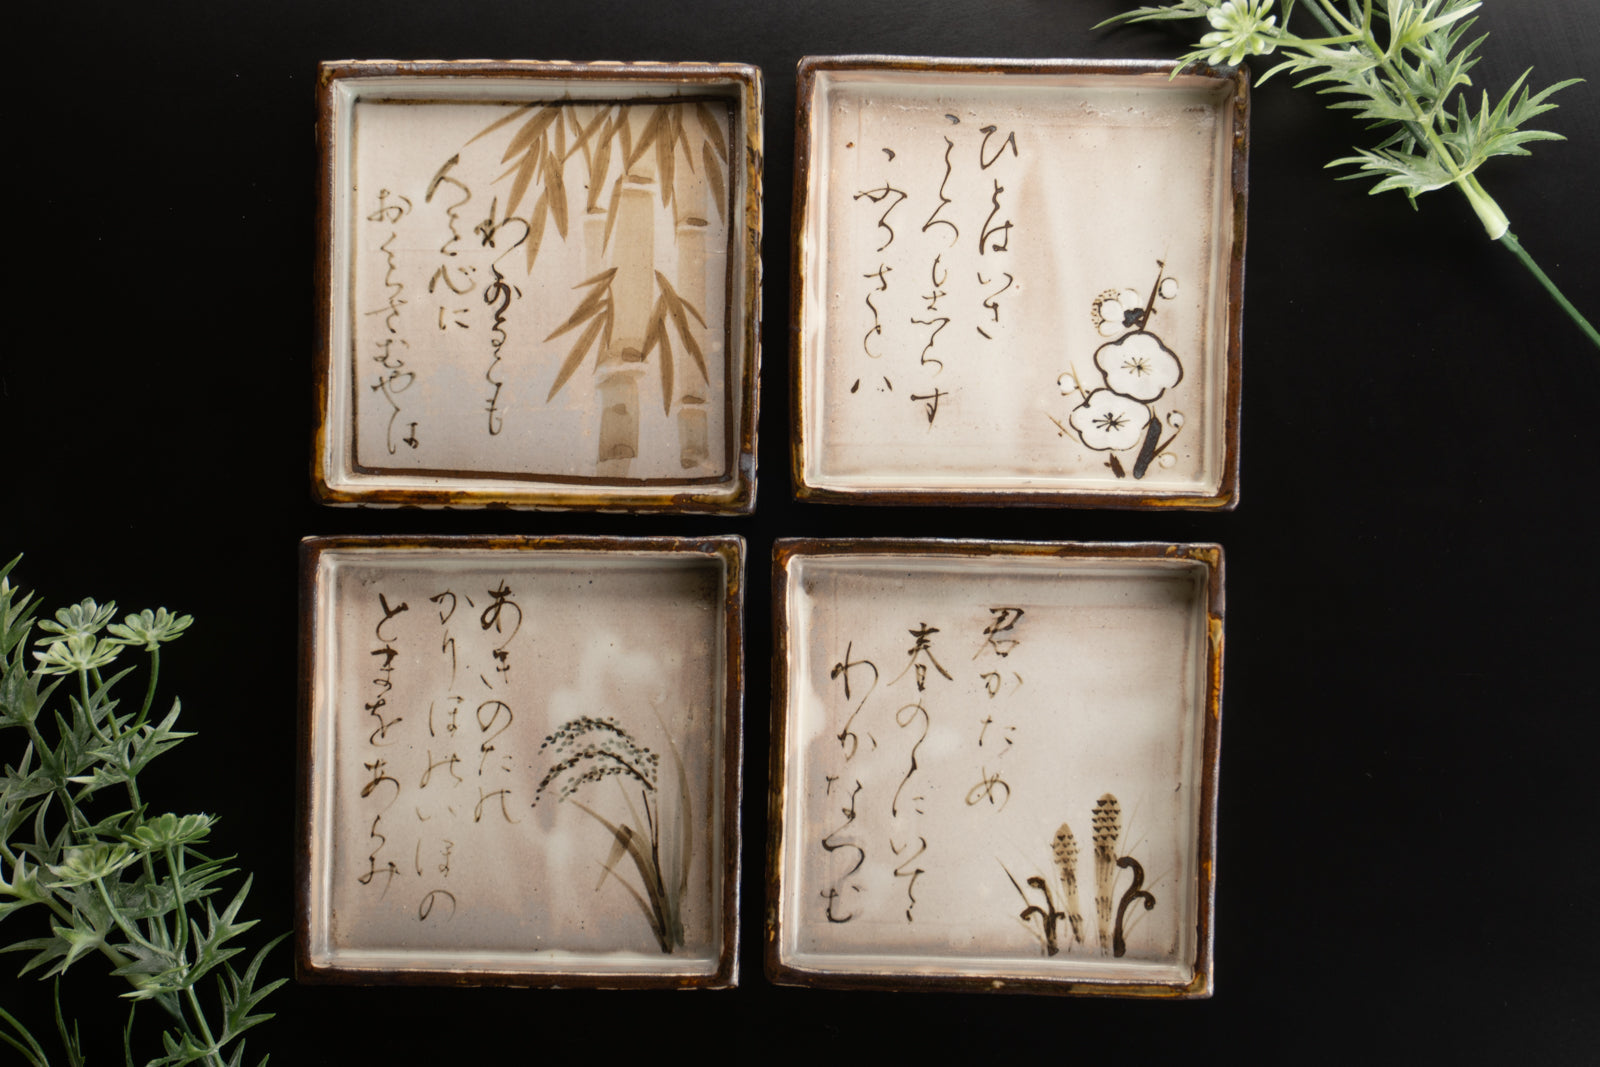 ひとはいさ
こゝろも志らす
ふるさとハ
わかるとも
人を心に
おくらさむやは
君かため
春のゝにいてゝ
わかなつむ
あきのたの
かりほのいほの
とまをあらみ